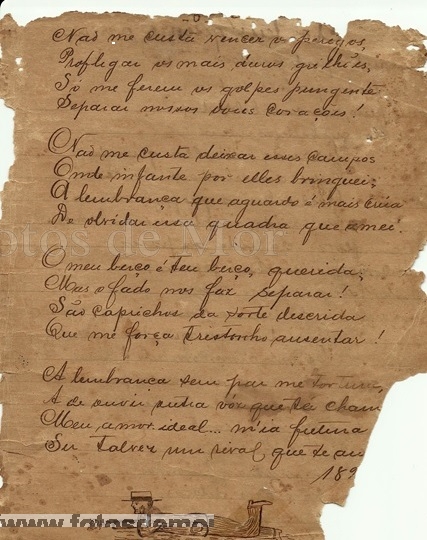 Não me custa vencer os perigos,
Profligar os mais duros grilhões,
Só me ferem os golpes pungente
Separar nossos dous corações!
Não me custa deixar esses campos
Onde infante por elles brinquei;
A lembrança que aguardo é mais
De olvidar essa quadra que amei.
O meu berço é teu berço, querida,
Mas o fado nos faz separar!
São caprichos da sorte descrida
Que me força tristonho ausentar!
A lembrança sem par me tortura,
A de ouvir outra vóz que te cham
Meu amor ideal...
Ser talvez um rival que te am
189
Fotos de Mor
www.fotosdemor